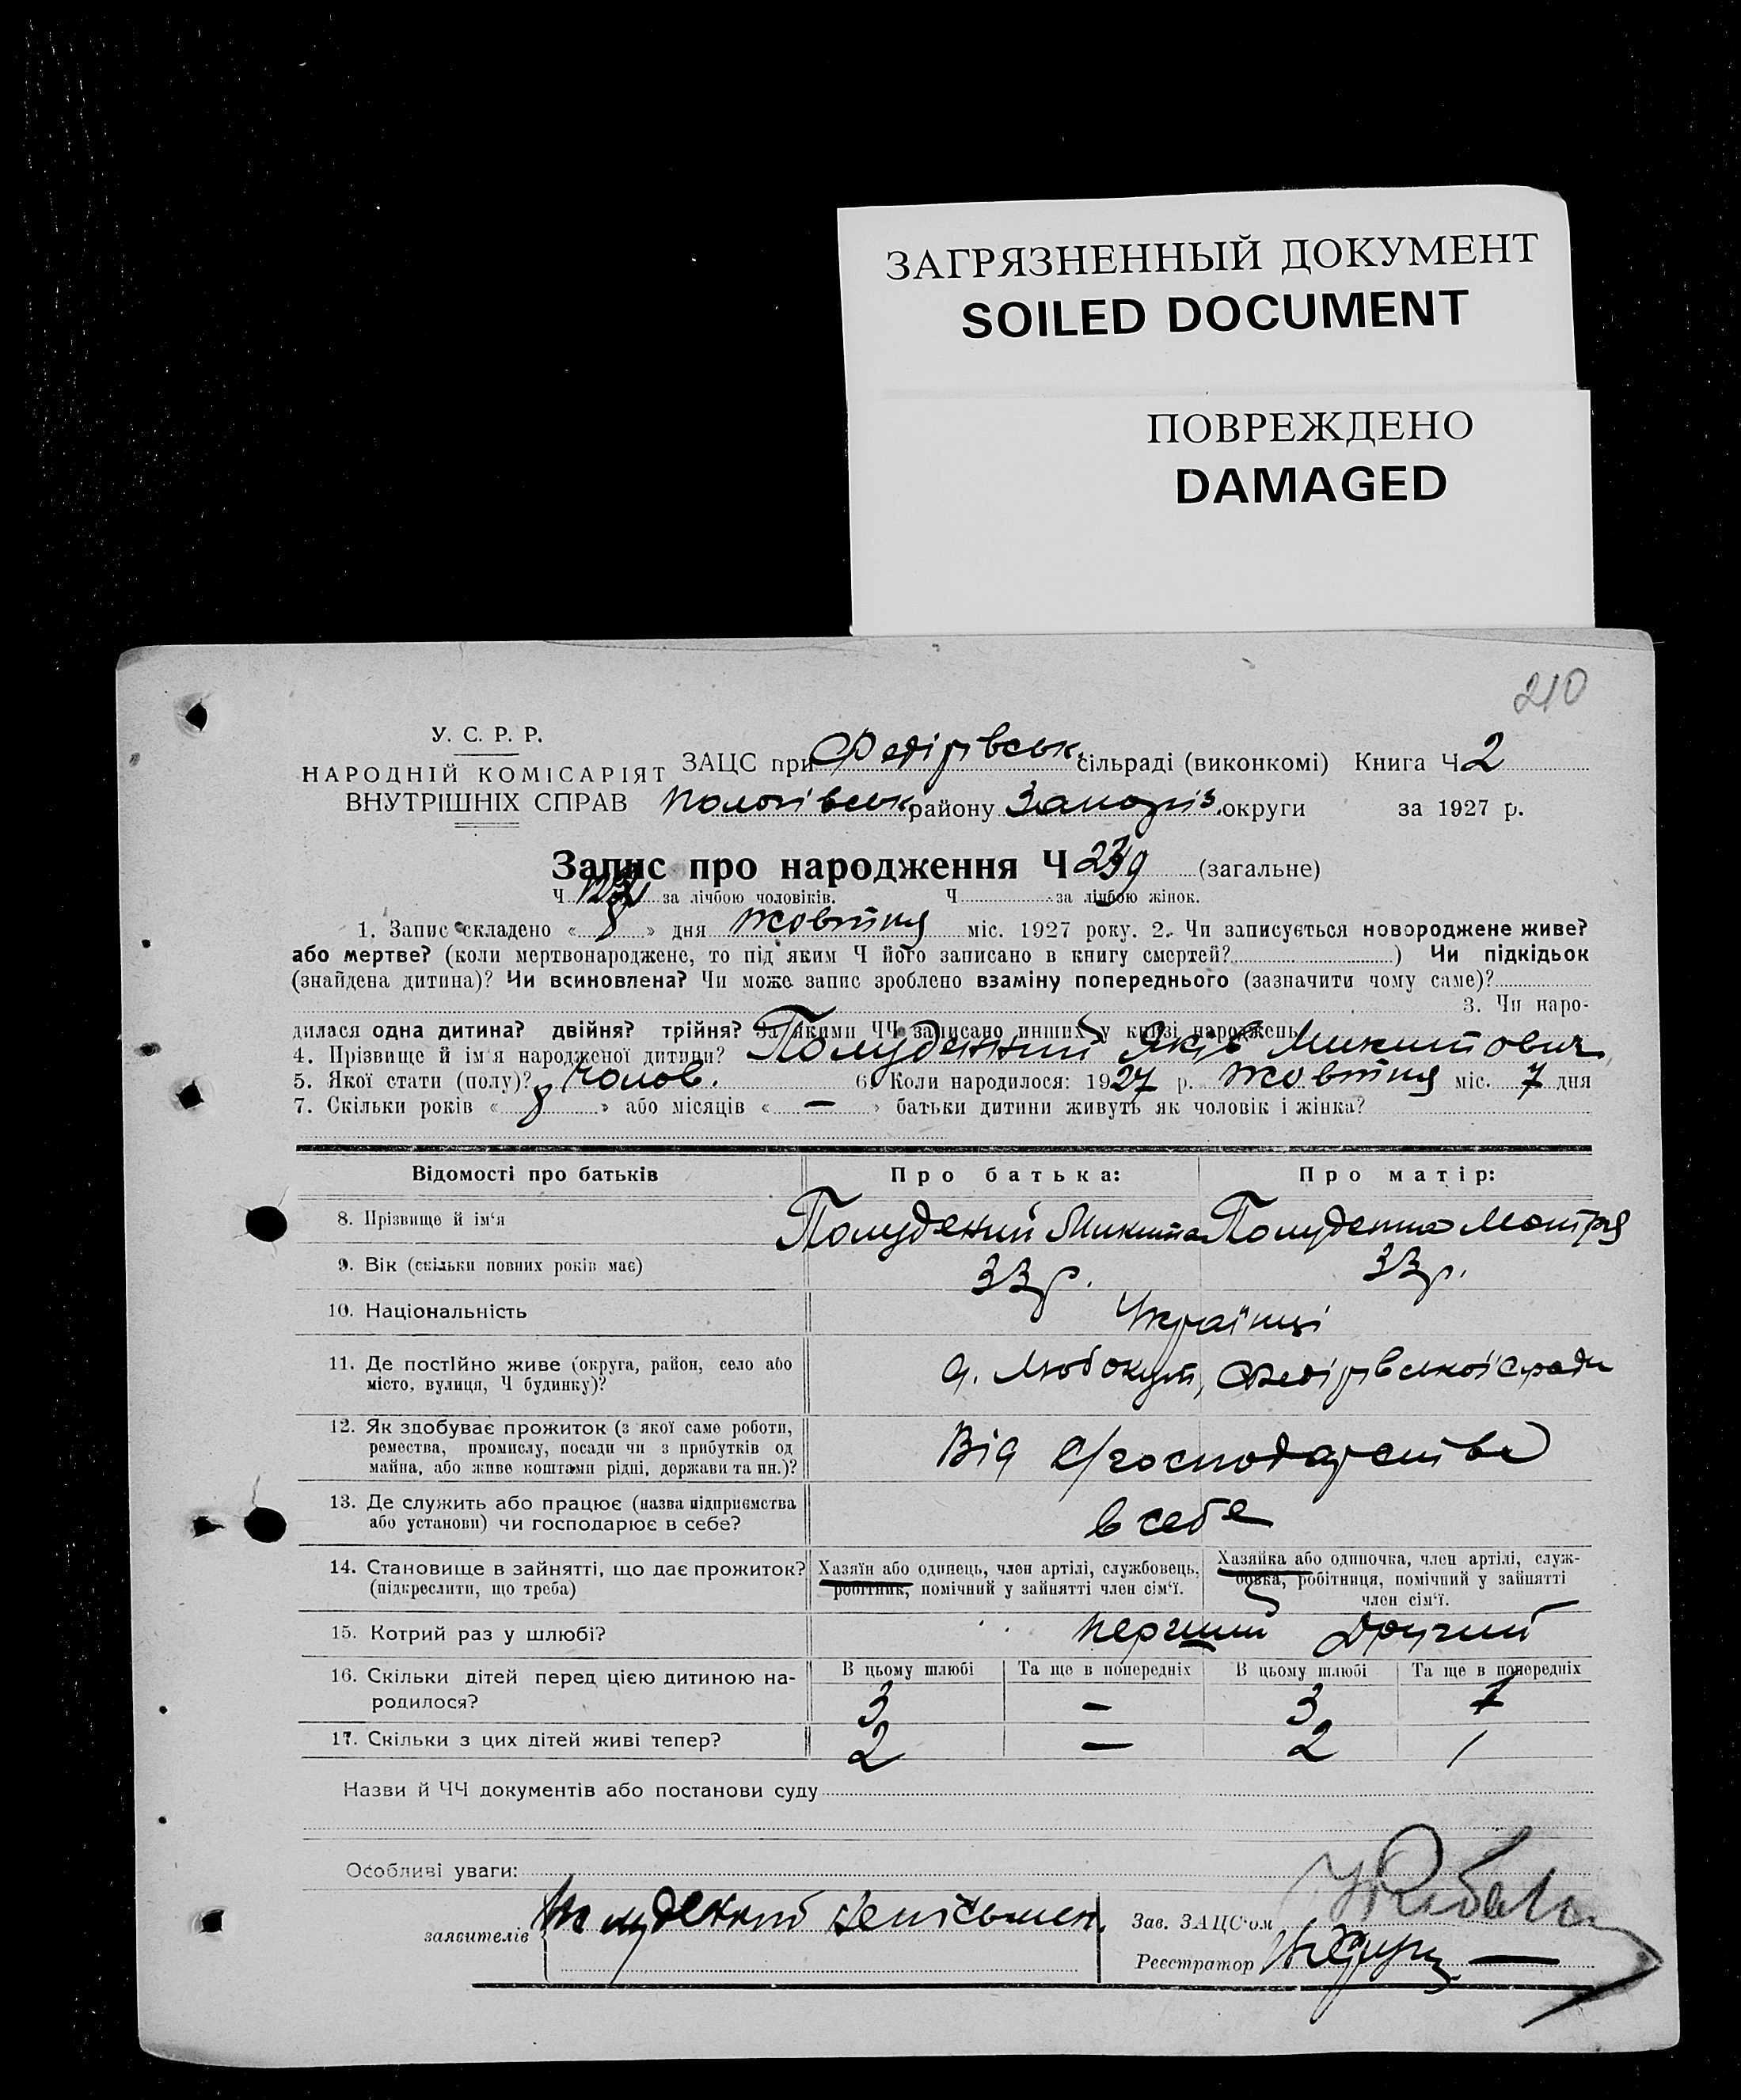 ЗАГРЯЗНЕННЫЙ ДОКУМЕНТ
SOILED DOCUMENT
ПОВРЕЖДЕНО
DAMAGED
210
У. С. Р. Р.
НАРОДНІЙ КОМІСАРІЯТ
ВНУТРІШНІХ СПРАВ
ЗАЦС при Федірівськ. сільраді (виконкомі) Книга Ч 2
Пологівськ району Запоріз. округи за 1927 р.
Запис про народження Ч 239 (загальне)
Ч за лічбою чоловіків. Ч за лічбою жінок.
1. Запис складено « 8 » дня жовтня міс. 1927 року. 2. Чи записується новороджене живе?
або мертве? (коли мертвонароджене, то під яким Ч його записано в книгу смертей? ) Чи підкідьок
(знайдена дитина)? Чи всиновлена? Чи може запис зроблено взаміну попереднього (зазначити чому саме)?
3. Чи наро-
дилася одна дитина? двійня? трійня? За якими ЧЧ записано инших у книзі народжень
4. Прізвище й ім'я народженої дитини? Полуденний Яків Микитович
5. Якої стати (полу)? Чолов. 6. Коли народилося: 1927 р. Жовтня міс. 7 дня
7. Скільки років « 8 » або місяців « — » батьки дитини живуть як чоловік і жінка?
Відомості про батьків
Про батька:
Про матір:
8. Прізвище й ім‘я
Полудений Микита
Полуденна Мотря
9. Вік (скільки повних років має)
33 р.
33 р.
10. Національність
Українці
11. Де постійно живе (округа, район, село або
місто, вулиця, Ч будинку)?
Любокут, Федірівської с/ради
12. Як здобуває прожиток (з якої саме роботи,
ремества, промислу, посади чи з прибутків од
майна, або живе коштами рідні, держави та ин.)?
Від с/господарства
13. Де служить або працює (назва підприємства
або установи) чи господарює в себе?
в себе
14. Становище в зайнятті, що дає прожиток?
(підкреслити, що треба)
Хазяїн або одинець, член артілі, службовець,
робітник, помічний у зайнятті член сім‘ї.
Хазяйка або одиночка, член артілі, служ-
бовка, робітниця, помічний у зайнятті
член сім‘ї.
15. Котрий раз у шлюбі?
перший
Другий
16. Скільки дітей перед цією дитиною на-
родилося?
В цьому шлюбі
Та ще в попередніх
В цьому шлюбі
Та ще в попередніх
3
—
3
1
17. Скільки з цих дітей живі тепер?
2
—
2
1
Назви й ЧЧ документів або постанови суду
Особливі уваги:
заявителів Полуденний неписьмен.
Зав. ЗАЦС‘ом
Реєстратор